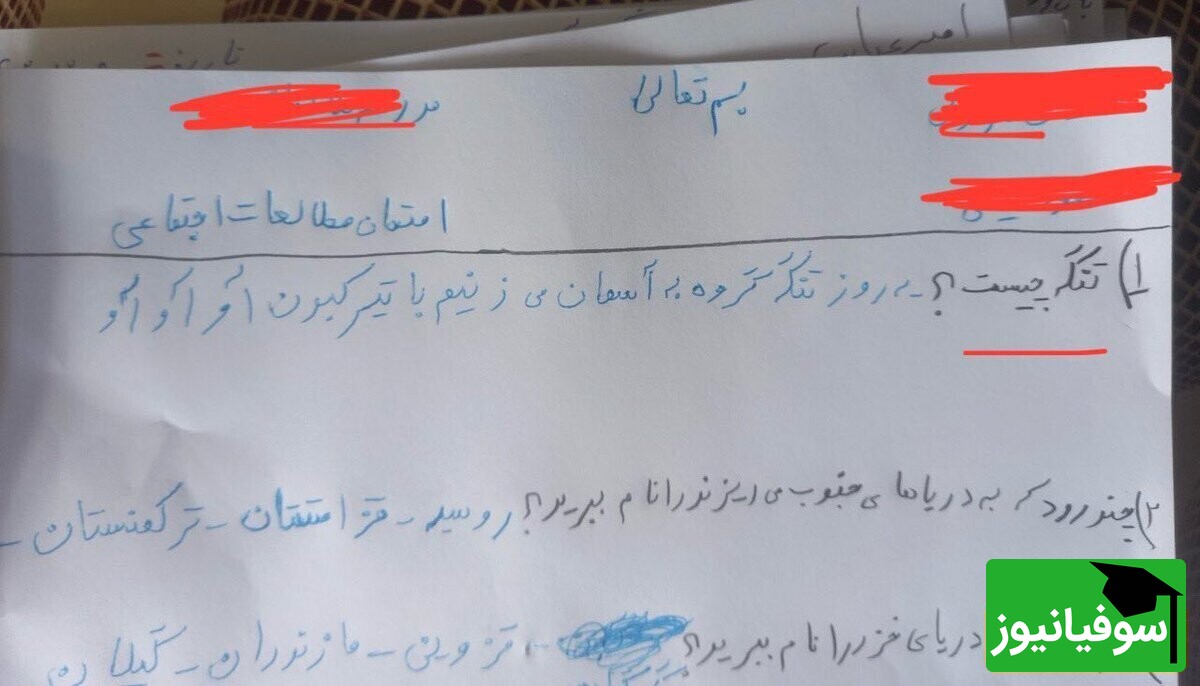 امیرعباس
تاریخ
بسم تعالی
امتحان مطالعات اجتماعی
۱) تنگه چیست؟ یه روز تنگه گروه به آسمان می زنیم با تیر کمون اُو اُو اُو
۲) چند رود که به دریاهای جنوب می ریزند را نام ببرید؟ روسیه - قزاقستان - ترکمنستان -
دریای خزر را نام ببرید؟ قزوین - مازندران - گیلان
سوفیانیوز